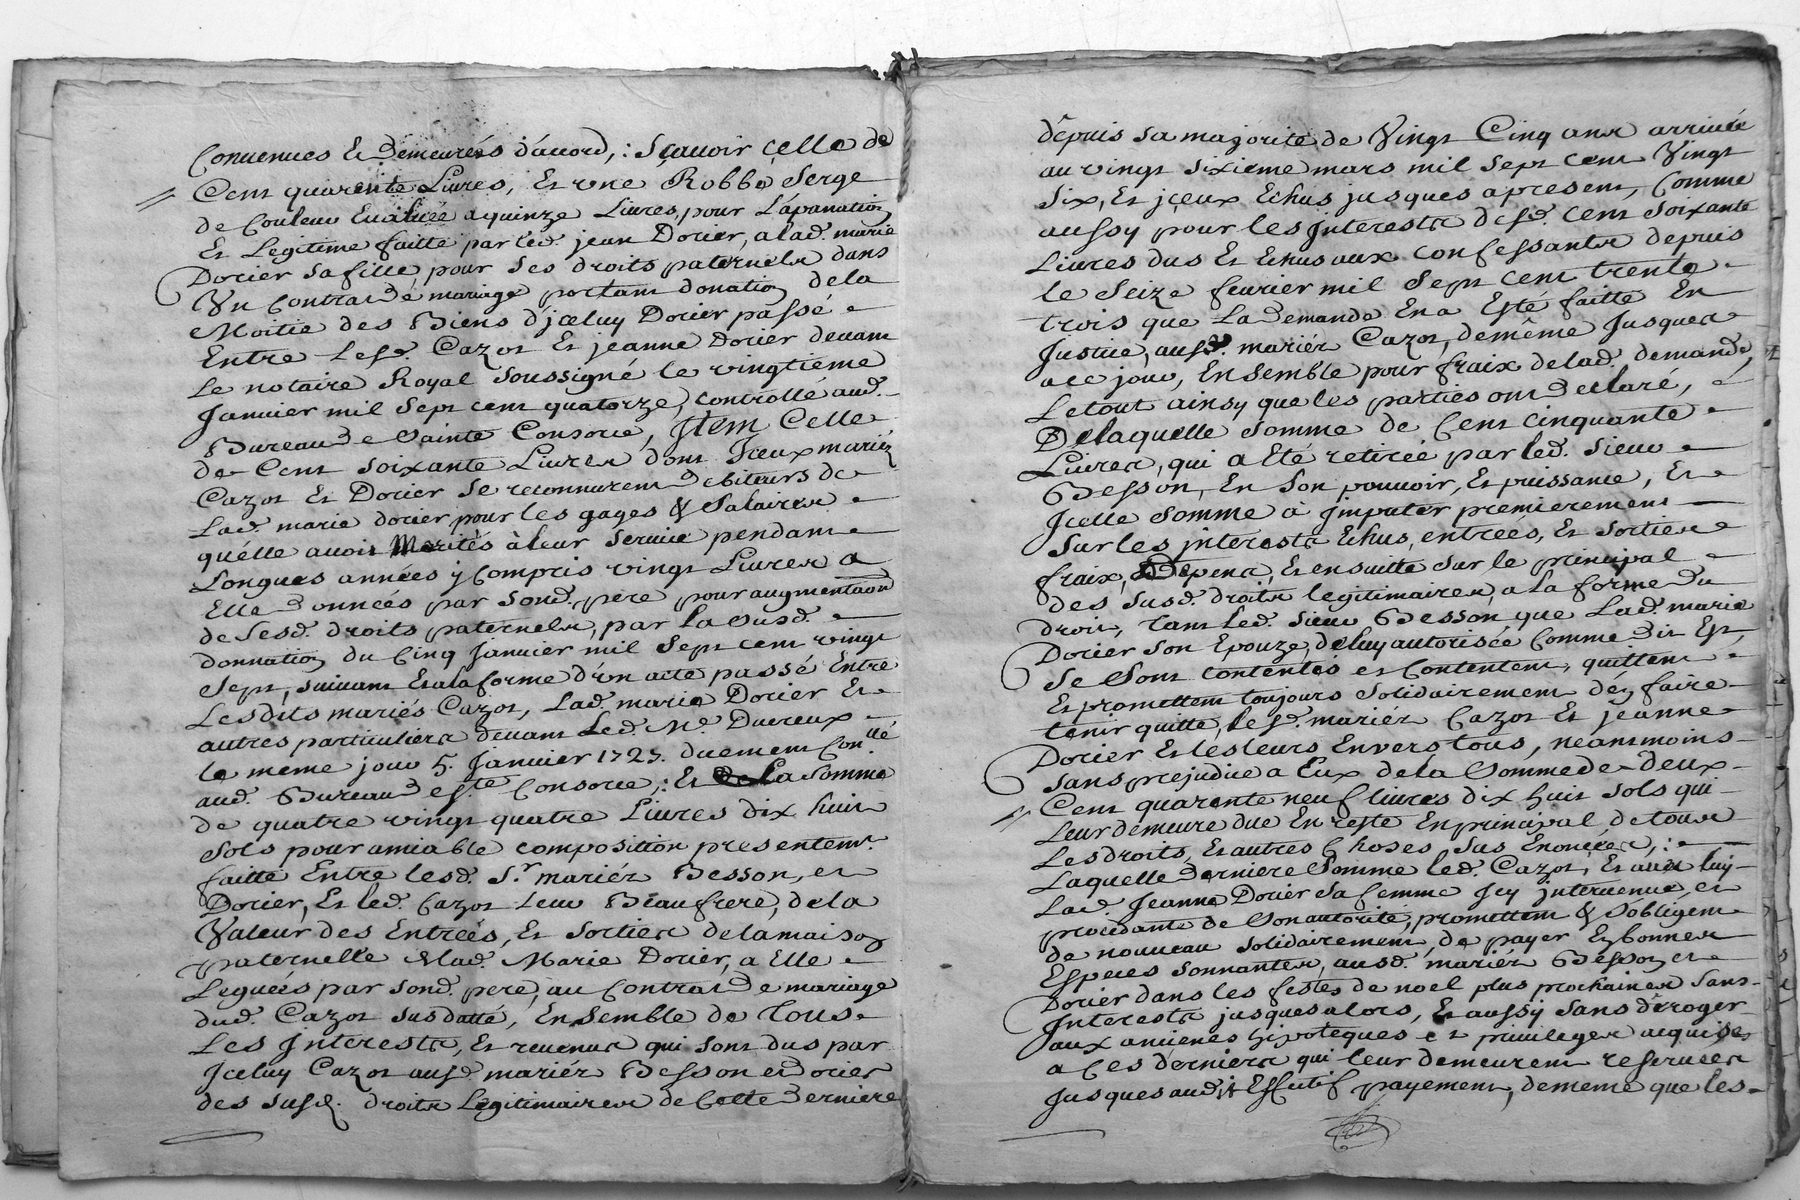 Conuenues Et demeurées d'accord, : Sçauoir çelle de
Cent quarente Liures, Et vne Robbe Serge
de Couleur Eualuée a quinze Liures, pour L'apanation
Et Legitime faitte par led. jean Dorier, a lad. marie
Dorier sa fille pour Ses droits paternels dans
Vn Contrat de mariage portant donation de la
Moitié des Biens d'jceluy Dorier passé
Entre Lesd. Cazot Et jeanne Dorier deuant
Le notaire Royal Soussigné le vingtieme
Januier mil Sept cent quatorze, controllé aud.
Bureau de Sainte Consorce, Item Celle
de Cent soixante Liures dont Jceux mariéz
Cazot Et Dorier Se reconnurent debiteurs de
Lad. marie dorier pour les gages & Salaires
qu'elle auoit Merités à leur Seruice pendant
Longues années ÿ Compris vingt Liures a
Elle données par Sond. pere pour augmentaon
de Sesd. droits paternels, par la Susd.
donnation du Cinq Januier mil Sept cent vingt
Sept, suiuant Et a la forme d'vn acte passé Entre
Lesdits mariés Cazot, Lad. marie Dorier Et
autres particuliers deuant Led. Me. Ducreux
le meme jour 5. Januier 1727. duement Con.llé
aud. Bureau de Ste Consorce, : Et de La Somme
de quatre vingt quatre Liures dix huit
Sols pour amiable composition presentemt.
faitte Entre lesd. Sr. mariéz Besson, et
Dorier, Et led. Cazot leur Beaufrere, de la
Valeur des Entrées, Et Sorties de la maison
paternelle & lad. Marie Dorier, a Elle
Leguées par Sond. pere, au Contrat de mariage
dud. Cazot Susdatté, Ensemble de Tous
Les Jnterests, Et reuenus qui sont dus par
Jceluy Cazot ausd. mariéz Besson et Dorier
des susd. droits Legitimaires de Cette derniere
depuis Sa majorité de Vingt Cinq ans arriuée
au vingt Sixieme mars mil Sept cent Vingt
Six, Et jçeux Echus jusques apresent, Comme
aussy pour les Jnterests desd. Cent Soixante
Liures dus Et Echus aux Confessants depuis
le Seize feurier mil Sept Cent trente
trois que La demande En a Esté faitte En
Justice, ausd. mariéz Cazot, demême Jusques
a ce jour, Ensemble pour fraix de lad. demande,
Le tout ainsy que les parties ont declaré,
De laquelle Somme de Cent Cinquante
Liures, qui a Eté retirée par led. Sieur
Besson, En Son pouuoir, Et puissance, Et
Jcelle Somme a jmputer premierement
Sur les jnterests Echus, entrées, Et Sorties
fraix, Depens, Et ensuitte Sur le principal
des Susd. droits legitimaires, a la forme du
droit, tant led. Sieur Besson que Lad. marie
Dorier Son Epouze, de luy autorisée Comme dit Est,
Se Sont Contentés et Contentent, quittent
Et promettent toujours Solidairement d'en faire
tenir quitte, lesd. mariéz Cazot Et jeanne
Dorier Et les leurs Enuers tous, neanmoins
Sans prejudice a Eux de la Somme de deux
Cent quarente neuf liures dix huit Sols qui
Leur demeure due En reste En principal de tous
Les droits, Et autres Choses Sus Enonceés, :
Laquelle derniere Somme led. Cazot, Et auec luy
Lad. Jeanne Dorier Sa femme Jcy jnteruenue, et
procedante de Son autorité, promettent & S'obligent
de nouueau Solidairement, de payer En bonnes
Especes Sonnantes, ausd. mariéz Besson et
Dorier dans les festes de noel plus prochaines Sans
Jnterests jusques alors, Et aussy Sans déroger
aux anciens hipoteques et priuileges acquises
a Ces derniers qui leur demeurent reseruées
Jusques audit Effectif payement, demême que les